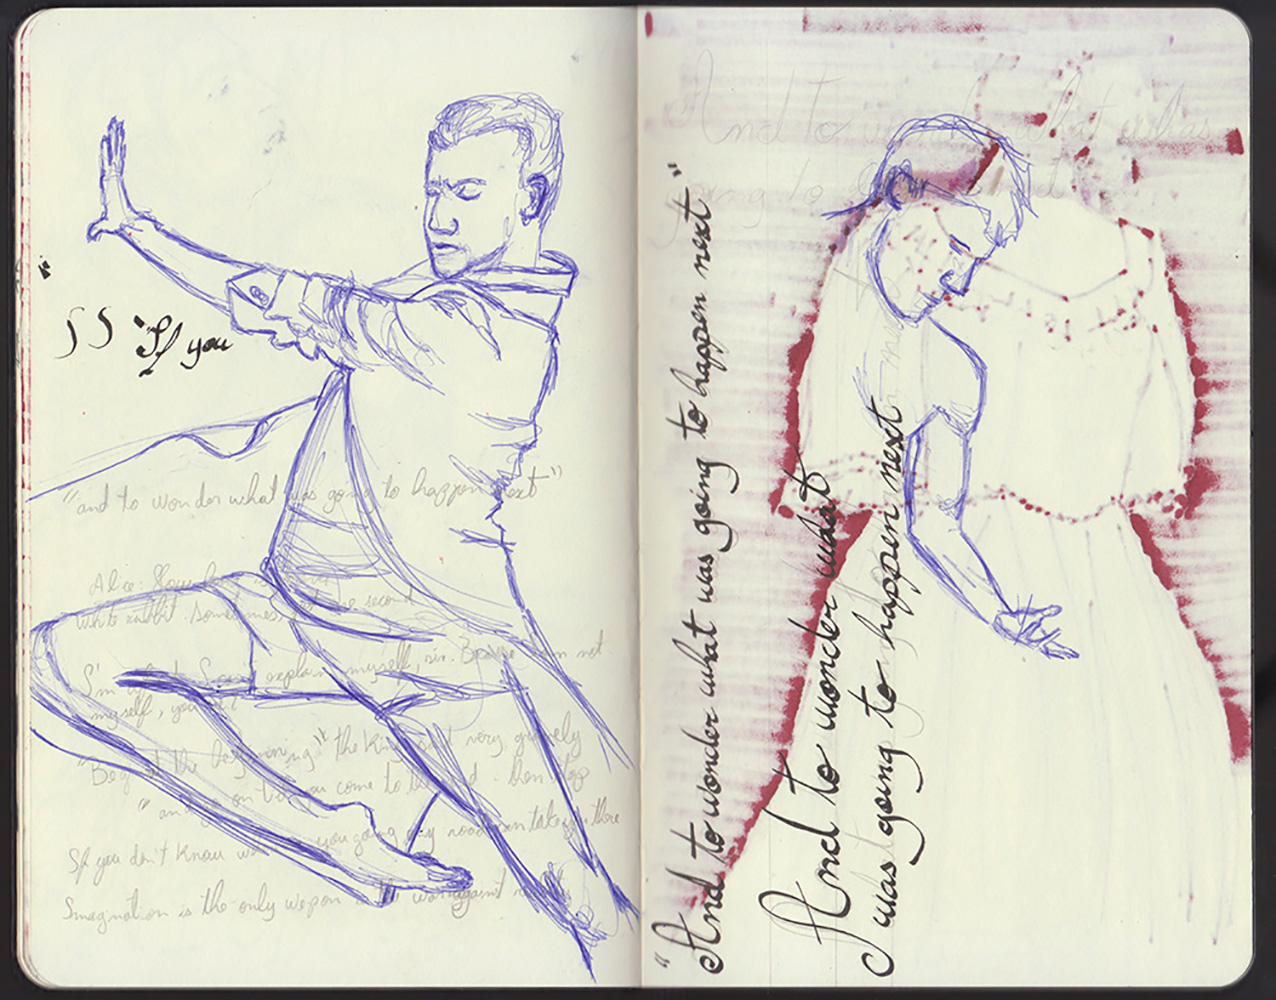 "If you
"and to wonder what was going to happen next"
Alice: How long is
white rabbit: Sometimes, the second
I'm explain myself, sir. Because I'm not
myself, you
"Begin at the beginning" the King said very gravely
" and go on till you come to the end: then stop
If you don't know you going any road can take you there
Imagination is the only wepon in the war against
"And to wonder what was going to happen next"
And to wonder what
was going to happen next
And to what was
going to